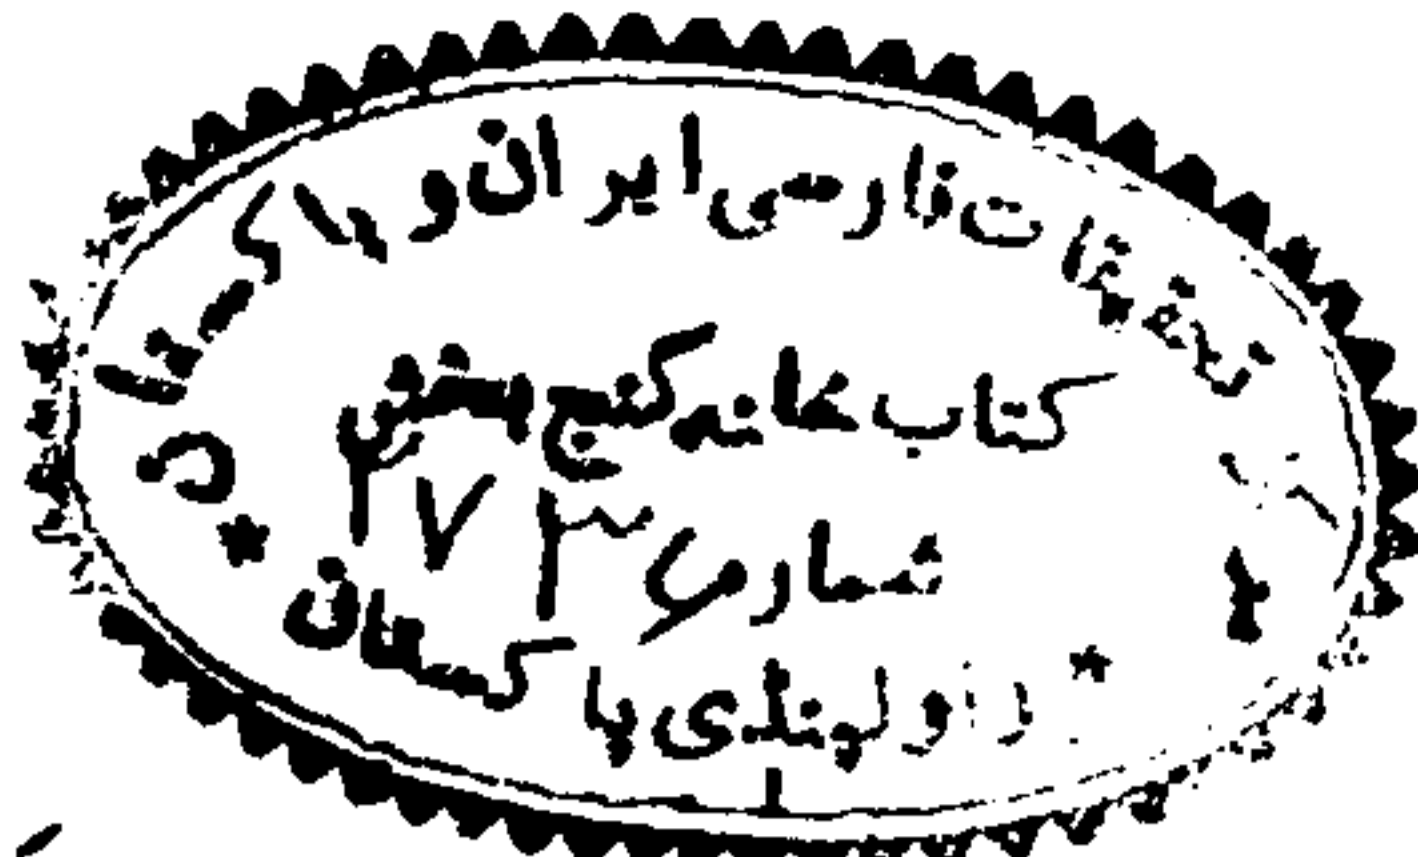 مرکز تحقیقات فارسی ایران و پاکستان
کتاب خانه گنج بخش
شماره ۲۷۳
راولپنڈی پاکستان